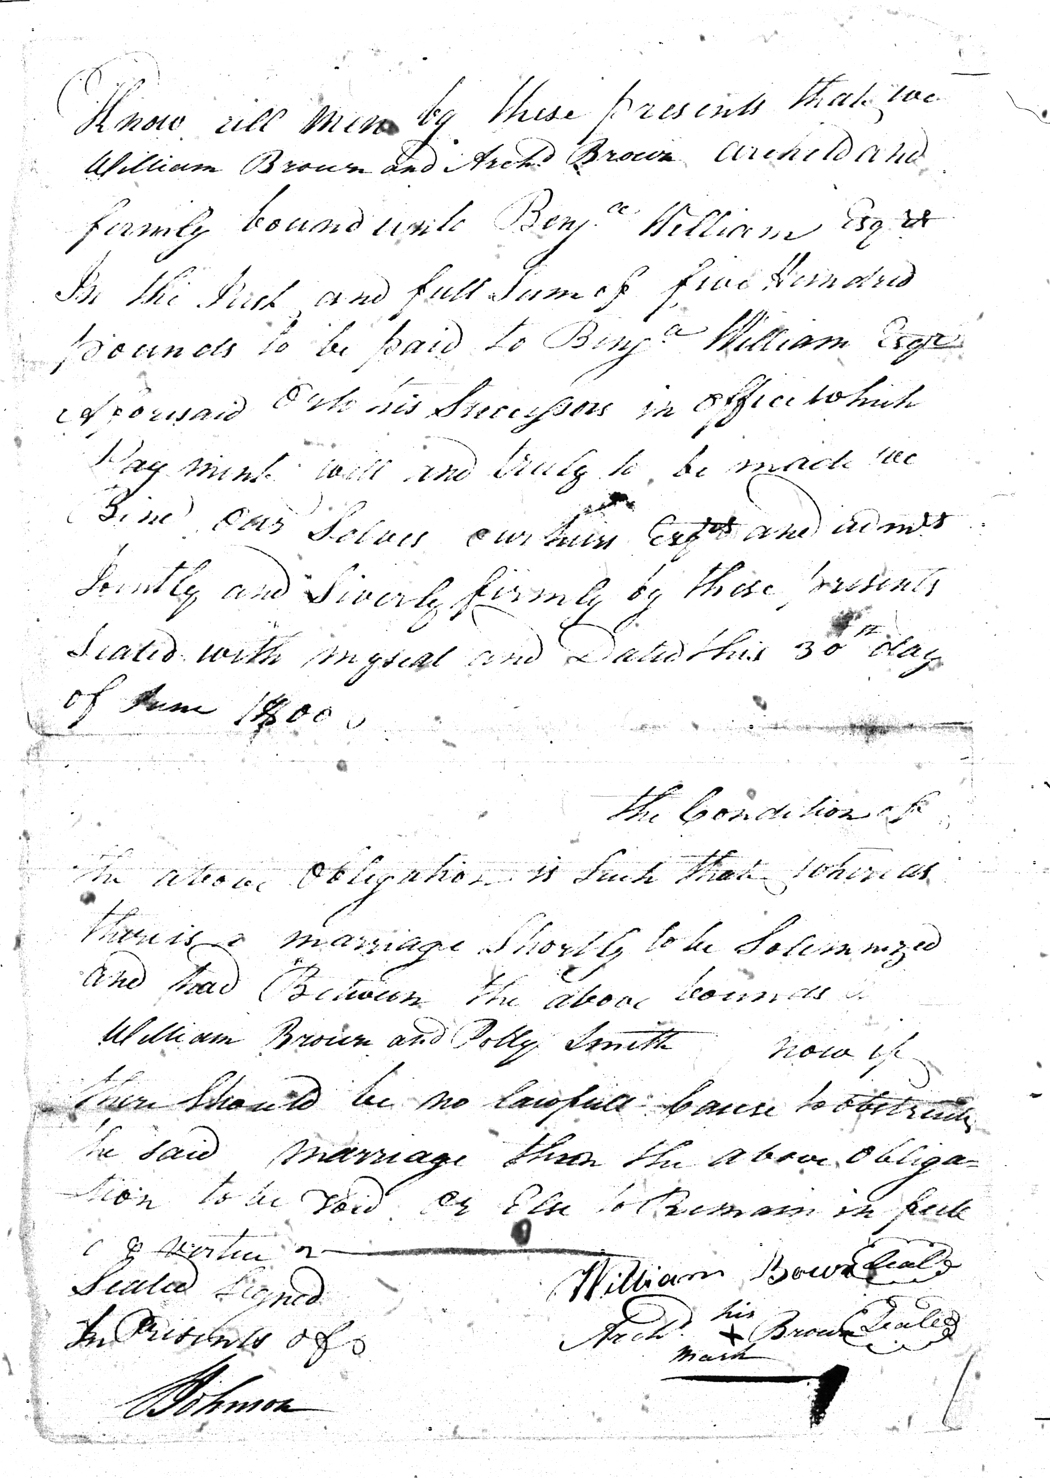 Know all men by these presents that we
William Brown and Archd Brown are held and
firmly bound unto Benja William Esqr
In the Just and full Sum of five Hundred
pounds to be paid to Benja William Esqr
Aforesaid or to his Successors in office which
Payment well and truly to be made we
Bind our Selves our heirs Exrs and adms
Jointly and Siverly firmly by these presents
Sealed with my seal and Dated this 30th day
of June 1800
the Condition of
the above obligation is Such that whereas
there is a marriage Shortly to be Solemnized
and had Between the above bounds
William Brown and Polly Smith now if
there Should be no lawfull Cause to obstruct
the said marriage then the above obliga=
tion to be void or Else to Remain in full
& vertue
Sealed Signed
In Presents of
William Bown Seal
Archd his Brown Sealed
X
mark
Johnson